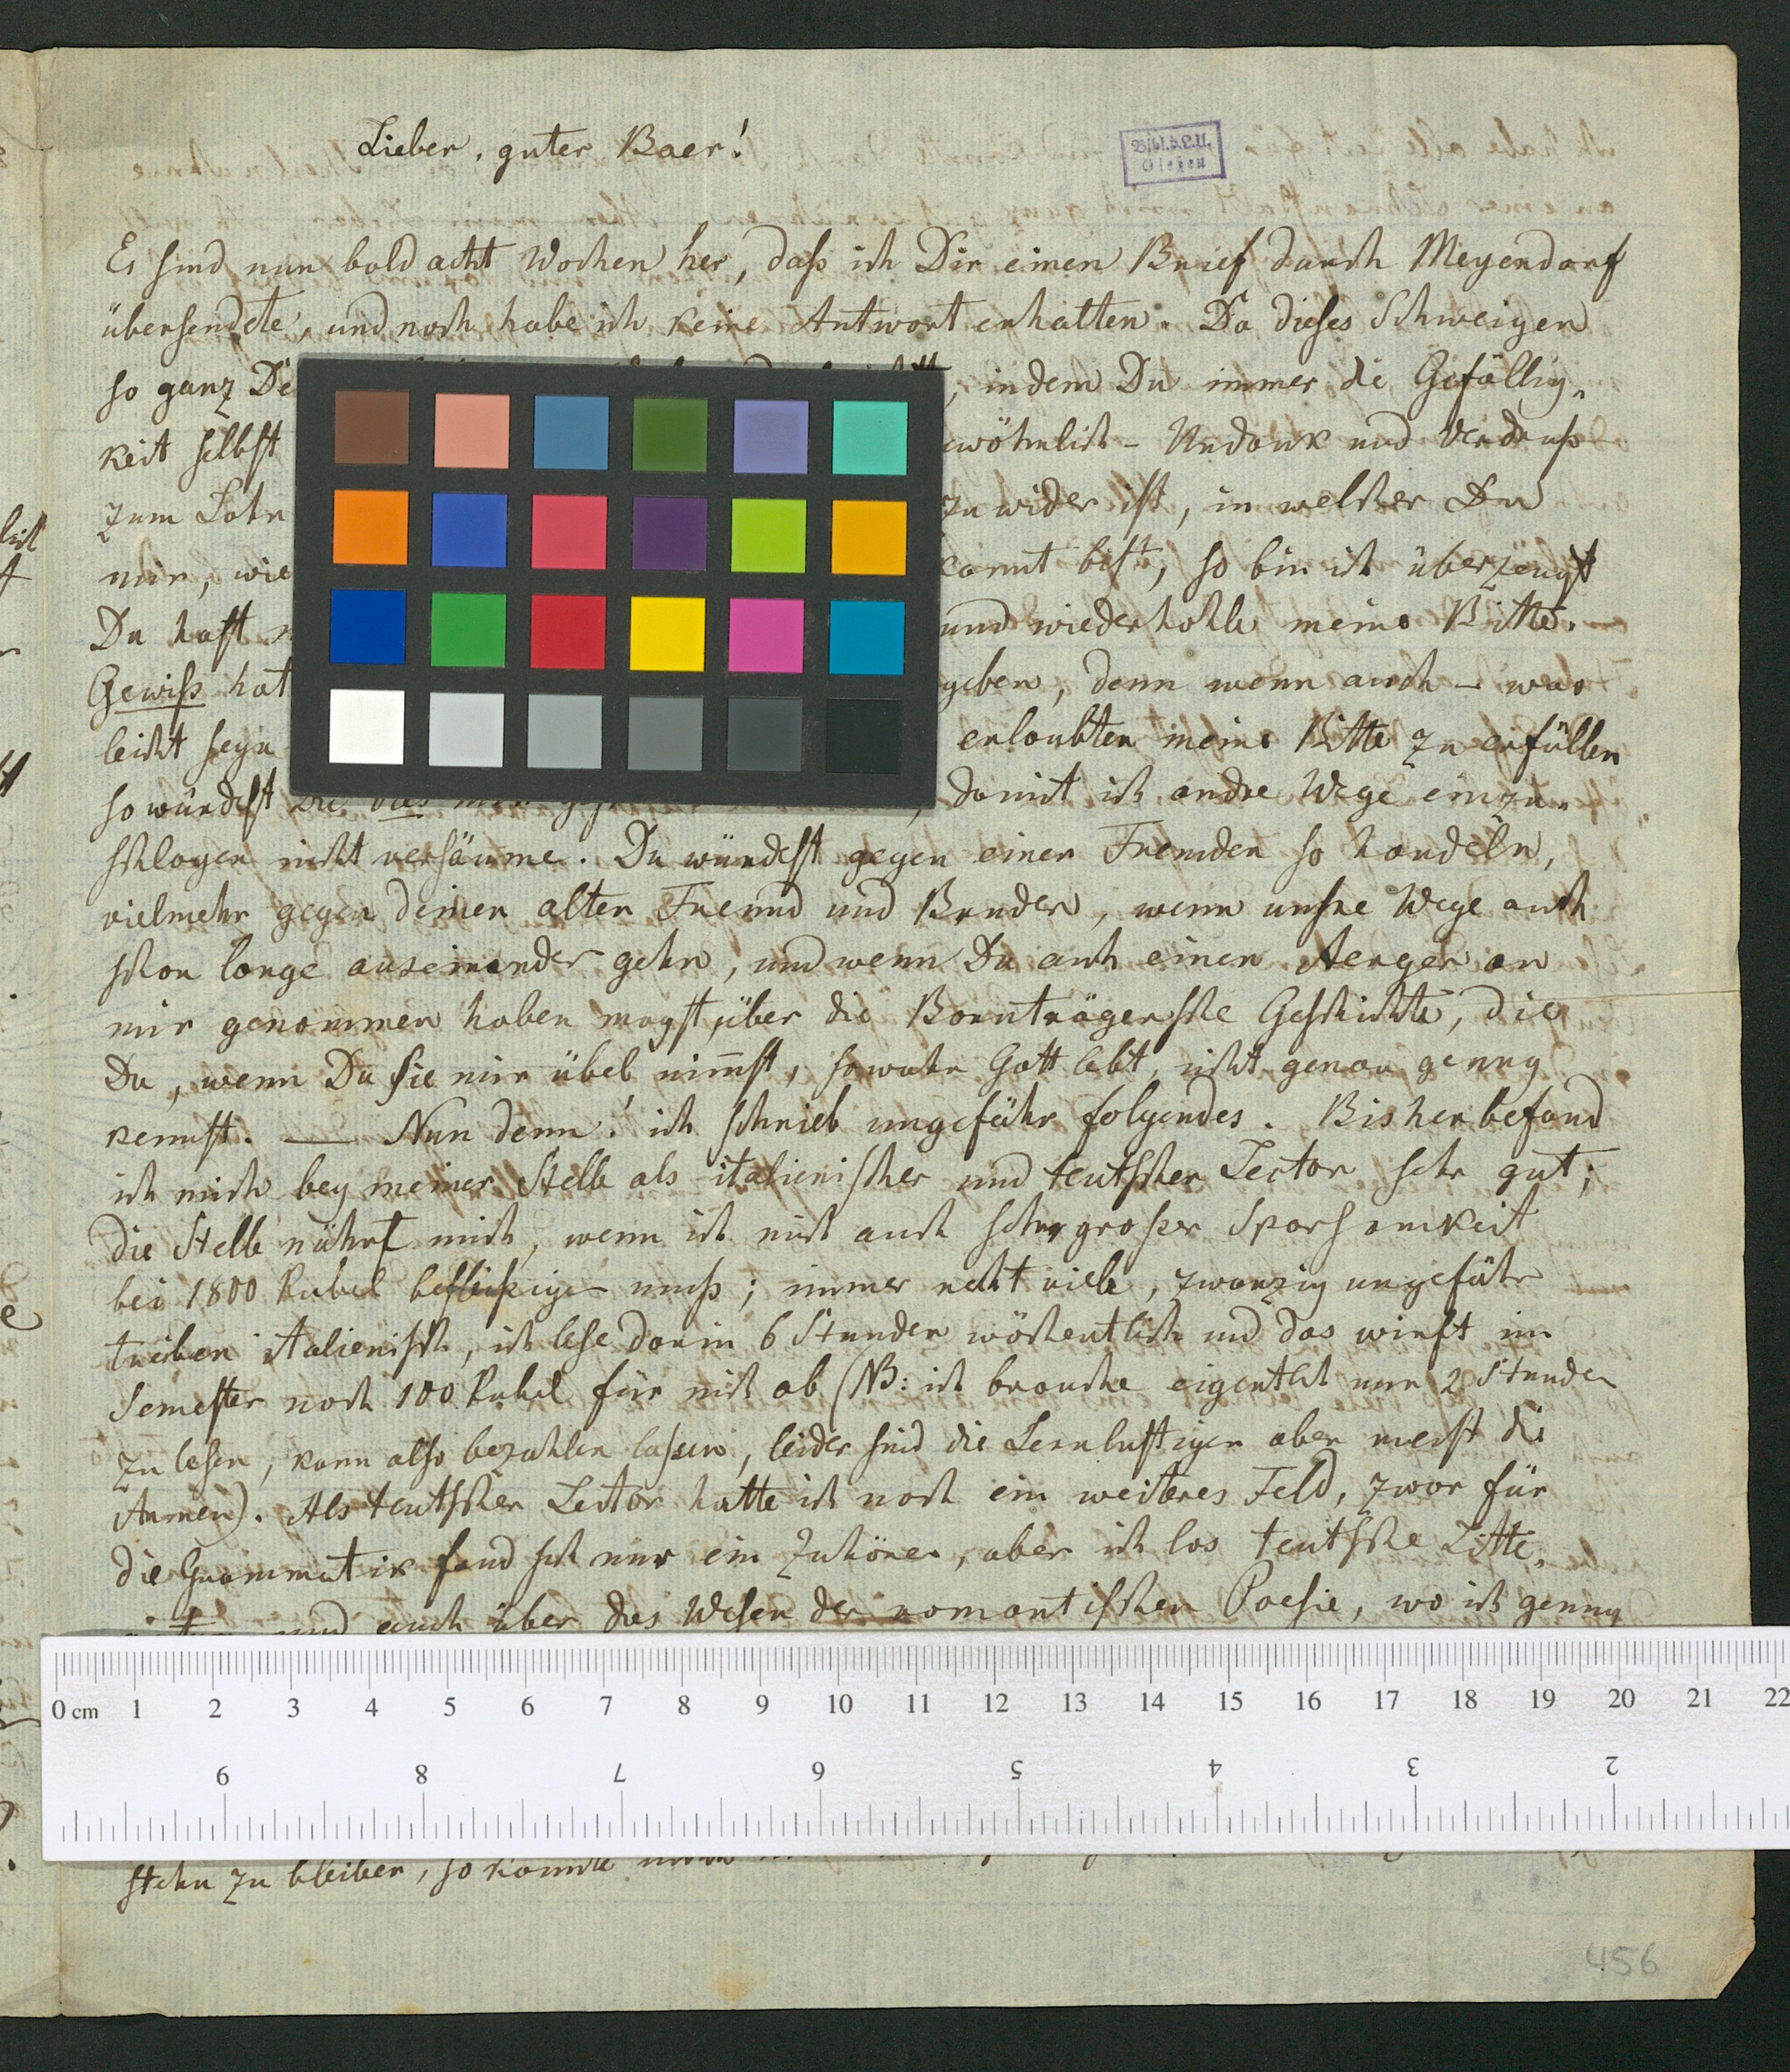 Lieber, guter Baer!
Bibl. d. L. U.
Gießen
Es sind nun bald acht Wochen her, daß ich Dir einen Brief durch Meyendorf
übersendete, und noch habe ich keine Antwort erhalten. Da dieses Schweigen
so ganz De , indem Du immer die Gefällig-
keit selbst wöhnlich - Undank und Verdruß
zum Lohn zuwider ist, in welcher Du
mir, wie kannt bist, so bin ich überzeugt
Du hast und wiederhohle meine Bitte. -
Gewiß hat geben, denn wenn auch - was
leicht seyn erlaubten meine Bitte zu erfüllen
so würdest Du dies mir , damit ich andre Wege einzu-
schlagen nicht versäume. Du würdest gegen einen Fremden so handeln,
vielmehr gegen deinen alten Freund und Bruder, wenn unsre Wege auch
schon lange auseinander gehn, und wenn Du auch einen Aerger an
mir genommen haben magst, über die Bornträgersche Geschichte, die
Du, wenn Du sie mir übel nimst, so wahr Gott lebt, nicht genau genug
kennst. — Nun denn! ich schrieb ungefähr folgendes. Bisher befand
ich mich bey meiner Stelle als italienischer und teutscher Lector sehr gut;
die Stelle nährt mich, wenn ich mich auch sehr großer Sparsamkeit
bei 1800 Rubel befleißigen muß; immer recht viele, zwanzig ungefähr
treiben italienisch, ich lese darin 6 Stunden wöchentlich und das wirft im
Semester noch 100 Rubel für mich ab (NB: ich brauche eigentlich nur 2 Stunden
zu lesen, kann also bezahlen lassen, leider sind die Lernlustigen aber meist die
Armen). Als teutscher Lector hatte ich noch ein weiteres Feld, zwar für
die Grammatik fand sich nur ein Zuhörer, aber ich las teutsche Litte-
und auch über das Wesen der romantischen Poesie, wo ich genug
0 cm 1 2 3 4 5 6 7 8 9 10 11 12 13 14 15 16 17 18 19 20 21 22
9 8 7 6 5 4 3 2
stehn zu bleiben, so konnte
456